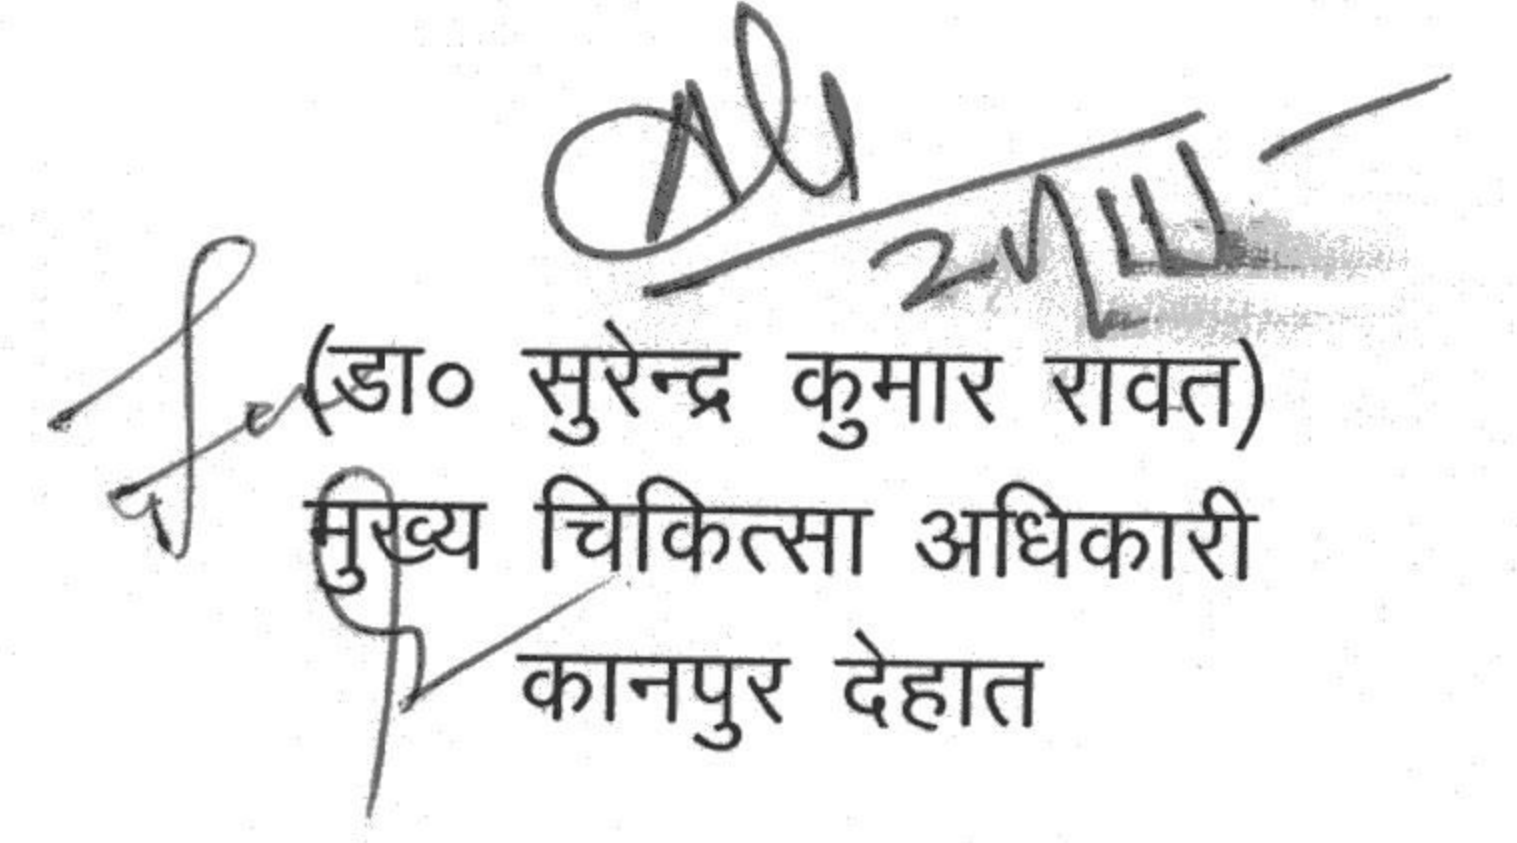 For
(डा० सुरेन्द्र कुमार रावत)
मुख्य चिकित्सा अधिकारी
कानपुर देहात